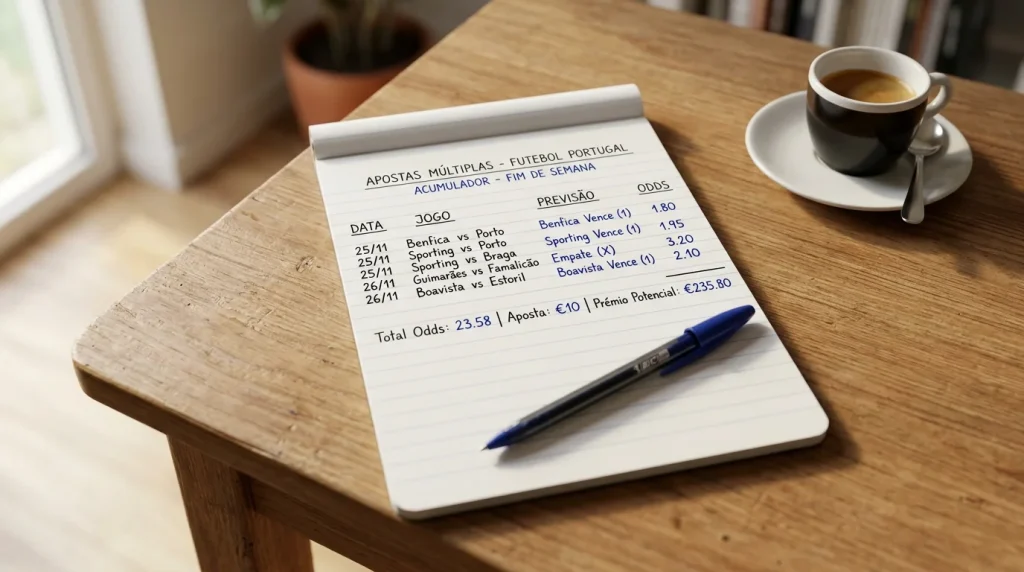 APOSTAS MÚLTIPLAS - FUTEBOL PORTUGAL
ACUMULADOR - FIM DE SEMANA
DATA JOGO PREVISÃO ODDS
25/11 Benfica vs Porto Benfica Vence (1) 1.80
25/11 Sporting vs Porto Sporting Vence (1) 1.95
25/11 Sporting vs Braga Empate (X) 3.20
26/11 Guimarães vs Famalicão Boavista Vence (1) 2.10
26/11 Boavista vs Estoril
Total Odds: 23.58 | Aposta: €10 | Prémio Potencial: €235.80